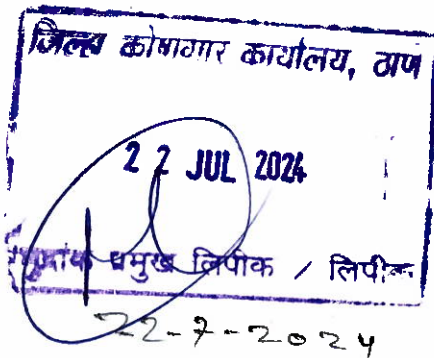 जिल्हा कोषागार कार्यालय, ठाणे
22 JUL 2024
प्रमुख लिपीक / लिपीक
22-7-2024